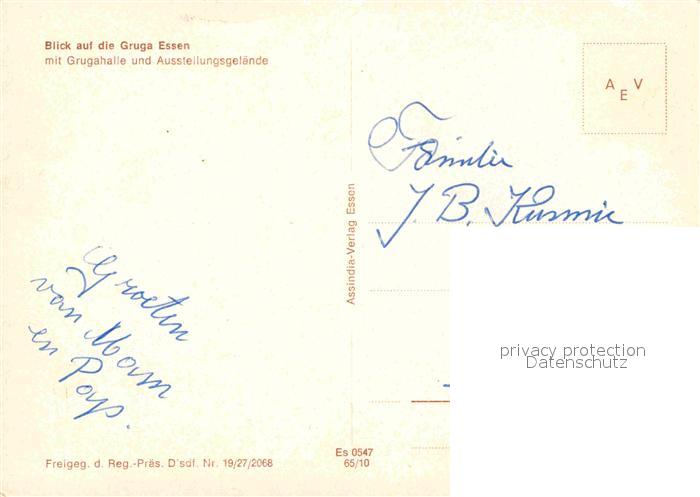 Blick auf die Gruga Essen
mit Grugahalle und Ausstellungsgelände
A E V
Familie
J. B. Kusmic
Assindia-Verlag Essen
Groeten
van Mam
en Pap.
privacy protection
Datenschutz
Freigeg. d. Reg.-Präs. D'sdf. Nr. 19/27/2068
Es 0547
65/10